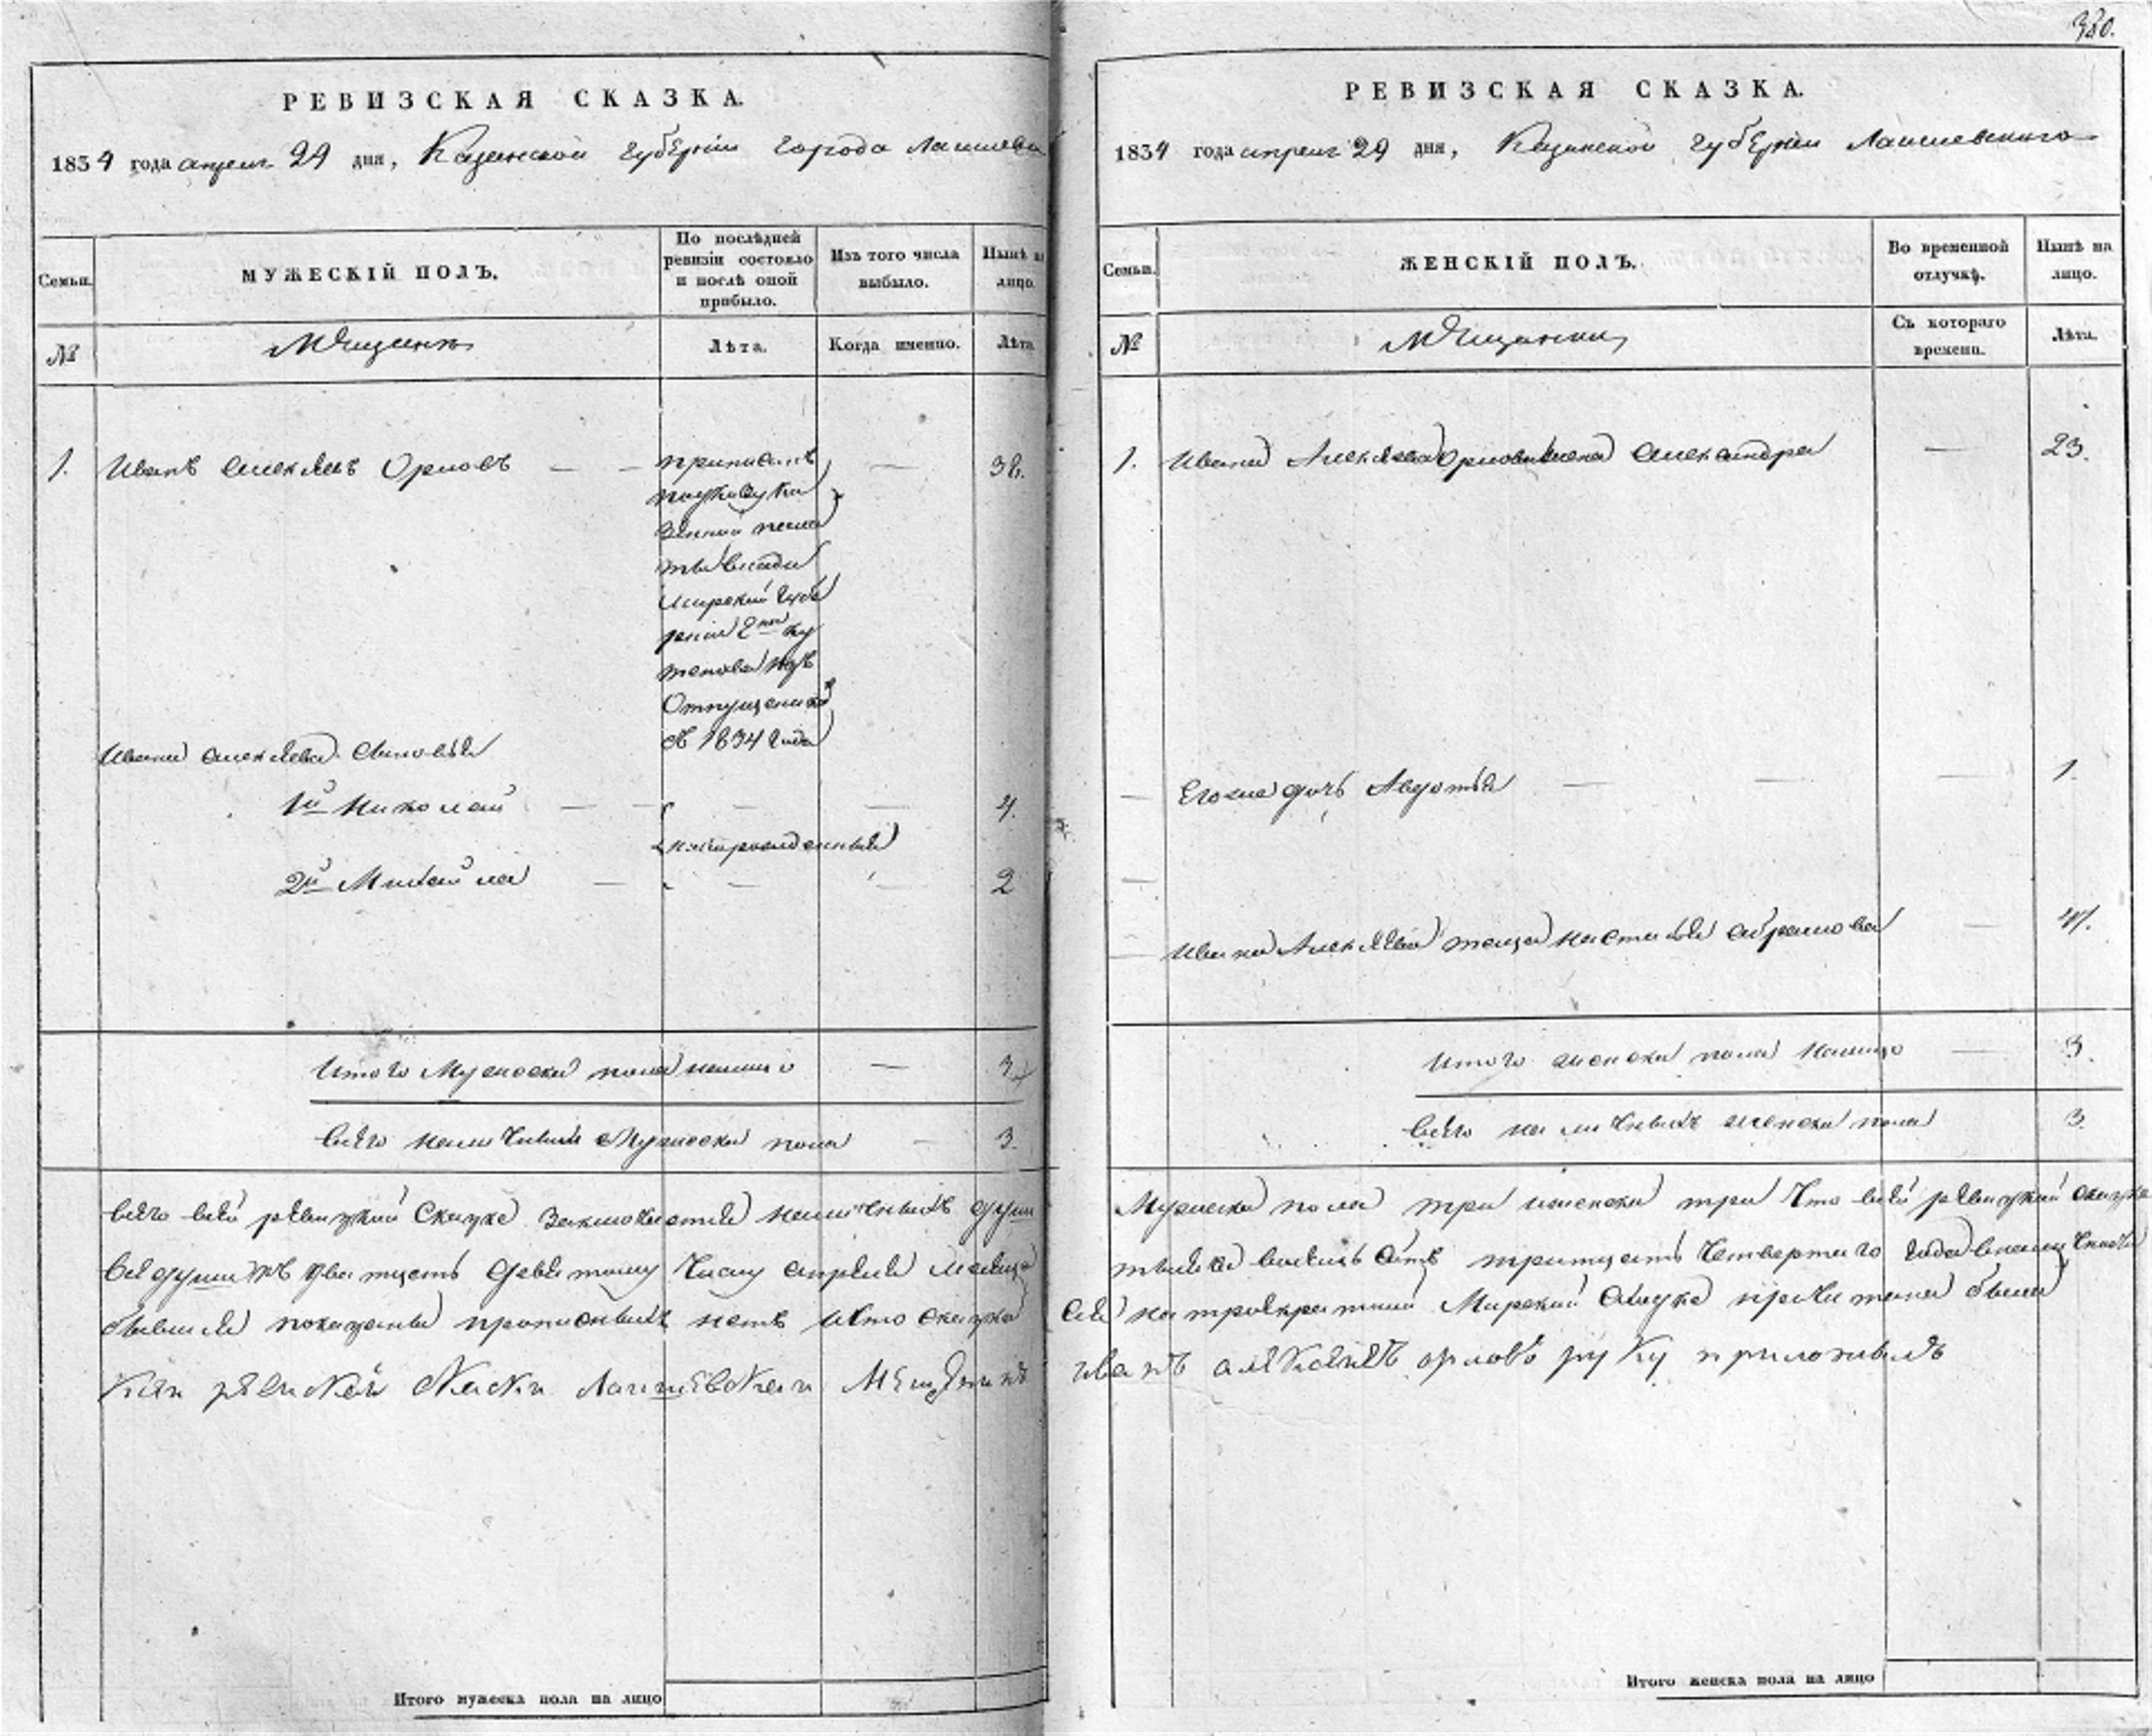 380.
РЕВИЗСКАЯ СКАЗКА.
1834 года апреля 29 дня, Казанской губернии города Лаишева
Семьи.
МУЖЕСКІЙ ПОЛЪ.
По послѣдней ревизіи состояло и послѣ оной прибыло.
Изъ того числа выбыло.
Нынѣ на лицо.
№
Мѣщинъ
Лѣта.
Когда именно.
Лѣта
1. Иванъ Алексѣевъ Орловъ — — — 38.
приписанъ
по указу Ка
зенной пала
ты
губе
рніи
отпущенико
съ 1834 года
Ивана Алексѣева сыновья
1й Николай — — — — 4.
новорожденныя
2й Михайла — — — 2
Итого Мужеска пола налицо — 3
Всего наличныхъ Мужеска пола — 3.
Всего в сей ревизкой Скаске заключается наличныхъ душъ
дватцать девятому числу апреля месяца
показаны прописныхъ нетъ и сто скаска
Ксей ревиской скаски Лаишевскаи Мещенинъ
Итого мужеска пола на лицо
РЕВИЗСКАЯ СКАЗКА.
1834 года апреля 29 дня, Казанской губерніи Лаишевскаго
Семьи.
ЖЕНСКІЙ ПОЛЪ.
Во временной отлучкѣ.
Нынѣ на лицо.
№
Мѣщанки
Съ котораго времени.
Лѣта.
1. Ивана Алексѣева Орлова жена Александра — 23.
— Егоже дочь Авдотья — — — 1.
—
— Ивана Алексѣева теща Настасья Абрамова — 47.
Итого женска пола налицо — 3.
Всего наличныхъ женска пола 3.
Мужеска пола три женска три Что в сей ревизкой скаске
тысяча восемь сотъ тритцать четвертаго года
Мирской сходке прочитана была
иванъ алексѣевъ орловъ руку приложилъ
Итого женска пола на лицо